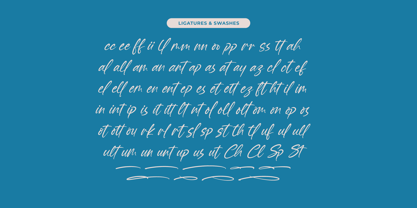 LIGATURES & SWASHES
cc ee ff ii ll mm nn oo pp rr ss tt ah
al all am an ant ap as at ay az cl ct ef
el ell em en ent ep es et ett ez ft ht il im
in int ip is it itt lt nt ol oll olt om on op os
ot ott ou rk rl rt sl sp st th tl uf ul ull
ult um un unt up us ut Ch Cl Sp St